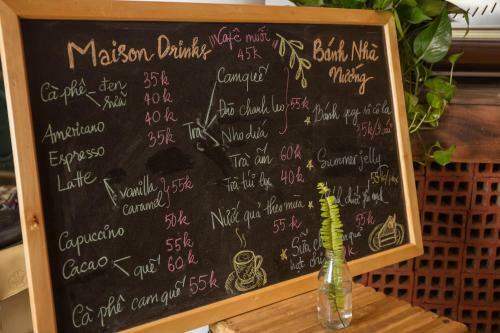 Maison Drinks
Cà phê đen 35k
sữa 40k
Americano 40k
Espresso 35k
Latte
vanilla 55k
caramel
50k
Capuccino 55k
Cacao quế 60k
Cà phê cam quế 55k
Cafê muối
45k
Cam quế
Trà Đào chanh leo 55k
Nho dứa
Trà ấm 60k
Trà túi lọc 40k
Nước quả theo mùa
55k
Sữa chua
hạt 55k
Bánh Nhà
Nướng
Bánh quy sô cô la
35k/3
Summer jelly
55k